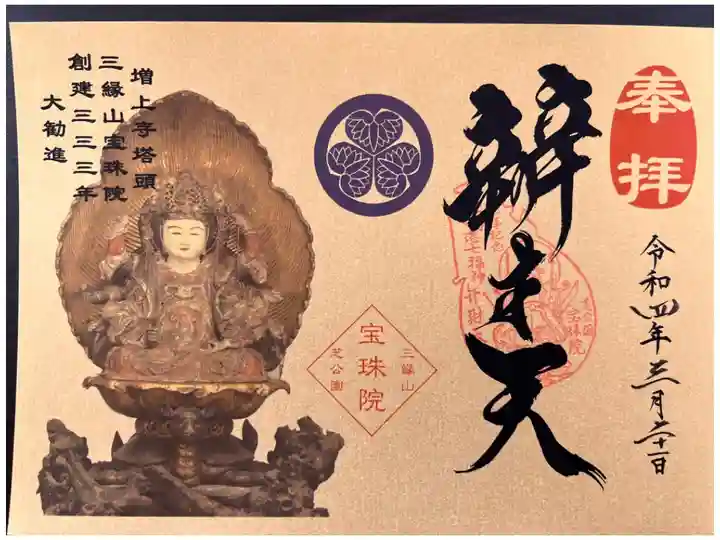 奉拝
令和四年三月二十一日
辨才天
宝珠院
三縁山
宝珠院
芝公園
増上寺塔頭
三縁山宝珠院
創建三三三年
大勧進